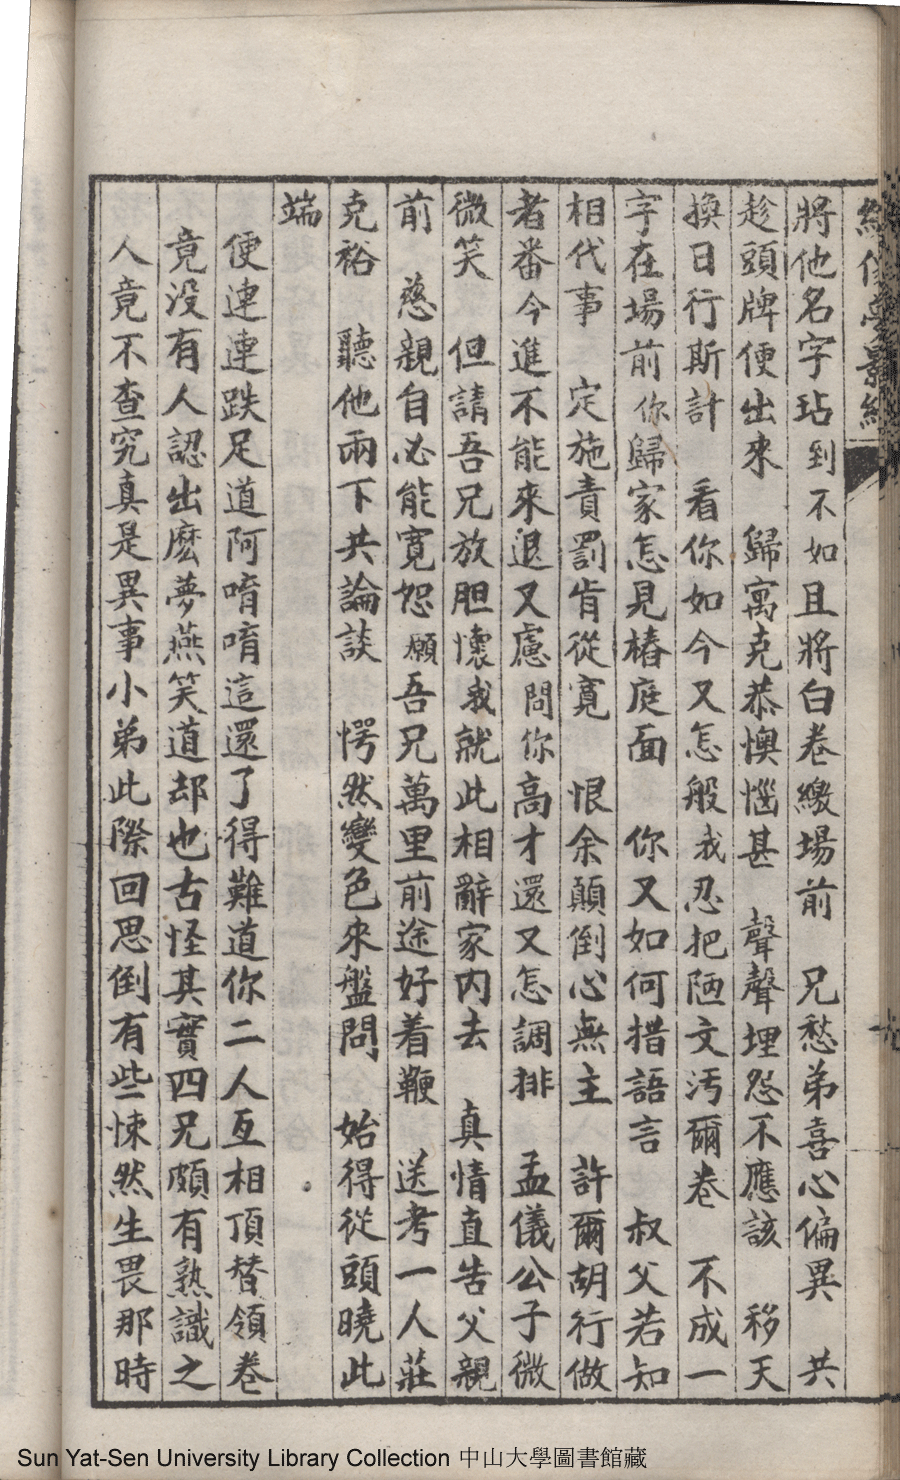 繪像夢影緣
將他名字玷到不如且將白卷繳場前　兄愁弟喜心偏異　共
趁頭牌便出來　歸寓克恭懊惱甚　聲聲埋怨不應該　移天
換日行斯計　看你如今又怎般我忍把陋文污爾卷　不成一
字在場前你歸家怎見椿庭面　你又如何措語言　叔父若知
相代事　定施責罰肯從寬　恨余顛倒心無主　許爾胡行做
者番今進不能來退又慮問你高才還又怎調排　孟儀公子微
微笑　但請吾兄放胆懷我就此相辭家內去　真情直告父親
前　慈親自必能寬恕願吾兄萬里前途好着鞭　送考一人莊
克裕　聽他兩下共論談　愕然變色來盤問　始得從頭曉此
端
便連連跌足道阿唷唷這還了得難道你二人互相頂替領卷
竟没有人認出麽夢燕笑道却也古怪其實四兄頗有熟識之
人竟不查究真是異事小弟此際回思倒有些悚然生畏那時
Sun Yat-Sen University Library Collection 中山大學圖書館藏